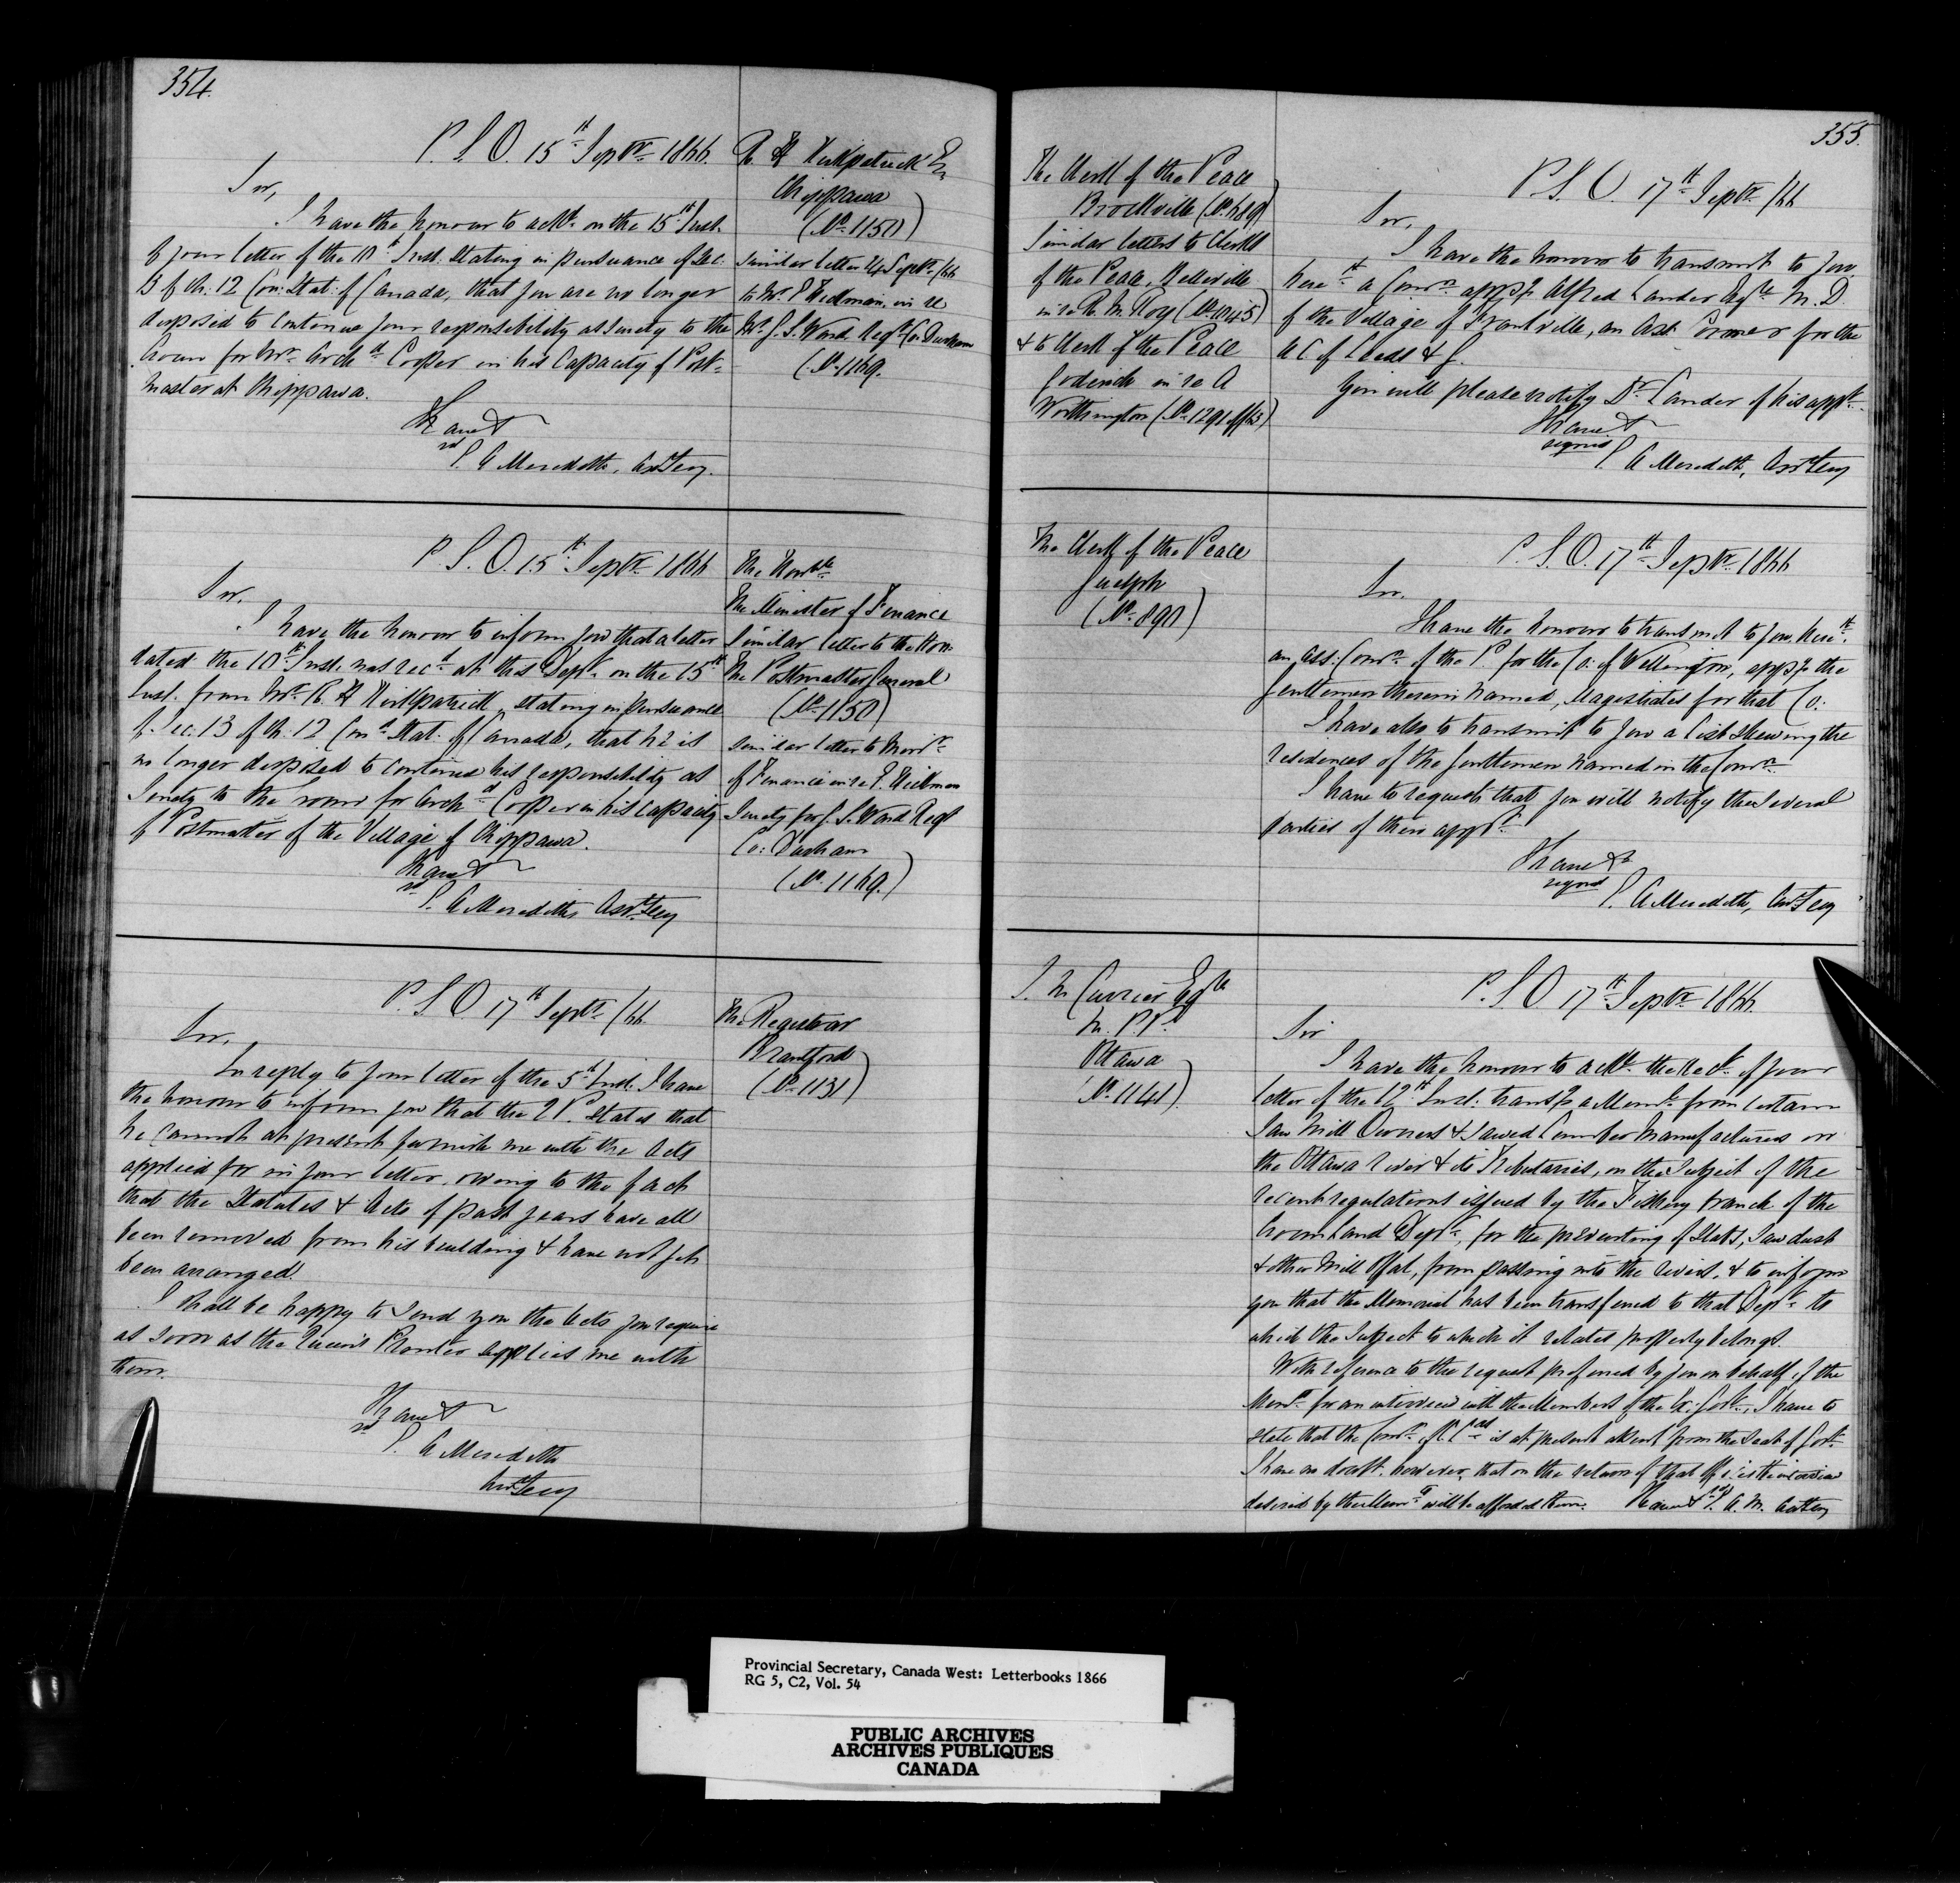 354.
P. S. O. 15th Septr 1866.
Sir,
I have the honour to ackt. on the 15th Inst.
of your letter of the 10th Inst. Stating in pursuance of Sec.
13 of ch. 12 Con: Stat: of Canada, that you are no longer
disposed to continue your responsibility as Surety to the
Crown for Mr. Archd. Cooper in his Capacity of Post-
master at Chippawa.
I have &
sd
E. A Meredith, Asst Secy.
R. H Kirkpatrick Er
Chippawa
(No 1150)
Similar letter 24 Septr /66
to Mr. Hickman, in re
Mr. G. S. Ward Regr. Co: Durham
(No 1169.
P. S. O. 15th Septr 1866
Sir.
I have the honour to inform you that a letter
dated the 10th Inst. was recd. at this Dept. on the 15th
Inst. from Mr. R. H Kirkpatrick, stating in pursuance
of Sec. 13 of ch. 12 Cond. Stat: of Canada, that he is
no longer disposed to continue his responsibility as
Surety to the Crown for Archd. Cooper in his capacity
of Postmaster of the Village of Chippawa.
I have &
sd
E. A Meredith, Asst Secy
The Honble
The Minister of Finance
Similar letter to the Hon:
The Postmaster General
(No 1150)
Similar letter to Minr.
of Finance in re Hickman
Surety for G. S. Ward Regr
Co: Durham
(No 1169.)
P. S. O 17th Septr /66.
Sir,
In reply to your letter of the 5th Inst. I have
the honour to inform you that the Q P. states that
he cannot at present furnish me with the Acts
applied for in your letter, owing to the fact
that the Statutes & Acts of past years have all
been removed from his building & have not yet
been arranged.
I shall be happy to send you the Acts you require
as soon as the Queen's Printer supplies me with
them.
I have &
sd
E. A Meredith
Asst Secy
The Registrar
Brantford
(No 1131)
355.
The Clerk of the Peace
Brockville (No. 689)
Similar letters to Clerk
of the Peace, Belleville
in re R. M. Roy (No 1045)
& to Clerk of the Peace
Goderich in re A
Worthington (No 1291 of /63)
P. S. O. 17th Septr /66
Sir,
I have the honour to transmit to you
herewith a Comn. appg. Alfred Lander Esqre M. D
of the Village of Frankville, an Asst. Coroner for the
U C of Leeds & G.
You will please notify Dr. Lander of his appt.
I have &
signed
E A Meredith, Asst Secy
The Clerk of the Peace
Guelph
(No 890)
P. S. O. 17th Septr 1866
Sir.
I have the honour to transmit to you herewith
an Ass: Comn. of the P. for the Co: of Wellington, appg. the
Gentlemen therein named, Magistrates for that Co:
I have also to transmit to you a list shewing the
residences of the Gentlemen named in the Comn.
I have to request that you will notify the several
parties of their appt.
I have &c
signed
E. A Meredith, Asst Secy
J. M Currier Esqre
M. P. P.
Ottawa
(No. 1141)
P. S. O 17th Septr 1866.
Sir
I have the honour to ackt. the rect. of your
letter of the 12th Inst. transg. a Meml. from certain
Saw Mill Owners & Sawed Lumber Manufacturers on
the Ottawa River & its Tributaries, on the Subject of the
recent regulations issued by the Fishery branch of the
Crown Land Dept., for the preventing of Slabs, Saw dust
& other Mill Offal, from passing into the rivers, & to inform
you that the Memorial has been transferred to that Dept. to
which the Subject to which it relates properly belongs.
With reference to the request preferred by you on behalf of the
Memts. for an interview with the Members of the Ex: Govt., I have to
state that the Comr. of C. L. is at present absent from the Seat of Govt.
I have no doubt, however, that on the return of that officer the interview
desired by the Memts. will be afforded them. I have & sd E. A. M. Asst Secy
Provincial Secretary, Canada West: Letterbooks 1866
RG 5, C2, Vol. 54
PUBLIC ARCHIVES
ARCHIVES PUBLIQUES
CANADA